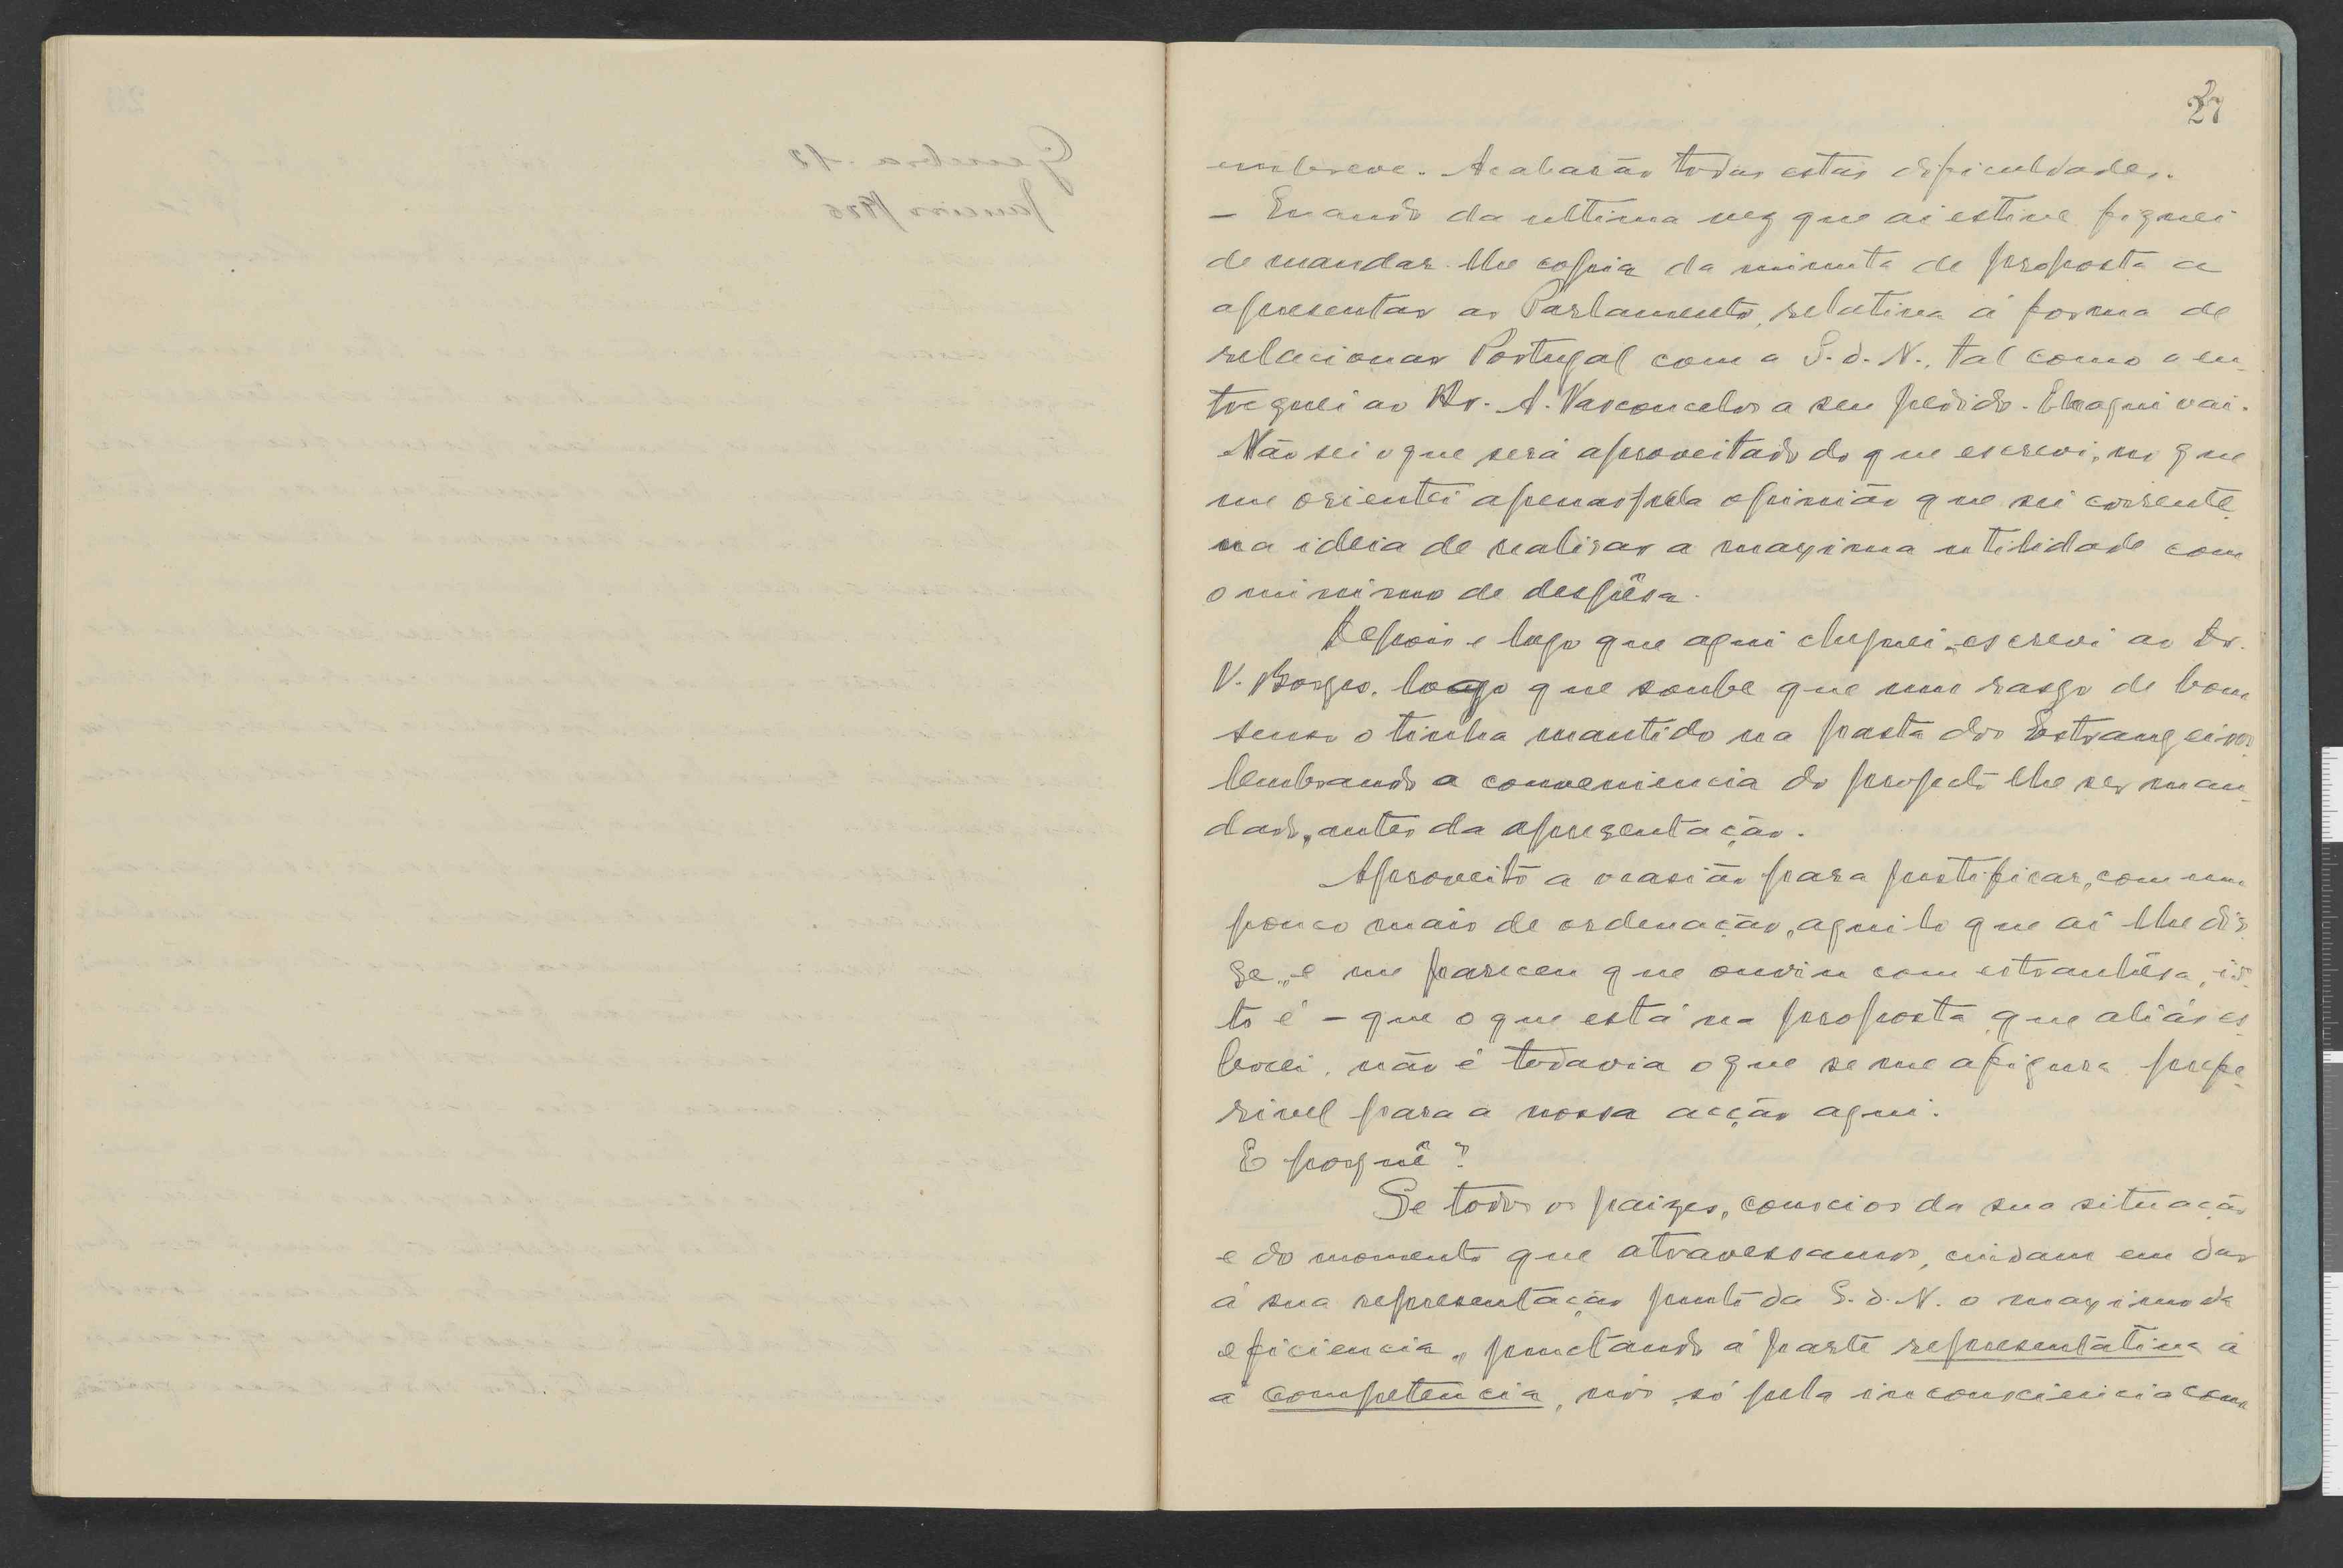 27
embreve. Acabarão todas estas dificuldades.
– Quando da ultima vez que ai estive fiquei
de mandar-lhe copia da minuta de proposta a
apresentar ao Parlamento, relativa á forma de
relacionar Portugal com a S. d. N., tal como a en-
treguei ao Dr. A. Vasconcelos a seu pedido. Ela aqui vai.
Não sei o que será aproveitado do que escrevi, no que
me orientei apenas pela opinião que sei corrente
na ideia de realisar a maxima utilidade com
o minimo de despêsa.
Depois e logo que aqui cheguei, escrevi ao Dr.
V. Borges, logo que soube que um rasgo de bom
senso o tinha mantido na pasta dos Estrangeiros
lembrando a conveniencia do projecto lhe ser man-
dado, antes da apresentação.
Aproveito a ocasião para justificar, com um
pouco mais de ordenação, aquilo que aí lhe dis-
se, e me pareceu que ouviu com estranhêsa, is-
to é – que o que está na proposta que aliás es-
bocei, não é todavia o que se me afigura prefe-
rivel para a nossa acção aqui.
E porquê?
Se todos os paizes, conscios da sua situação
e do momento que atravessamos, cuidam em dar
á sua representação junto da S. d. N. o maximo de
eficiencia, junctando á parte representativa a
a competencia, nós, só pela inconsciencia com